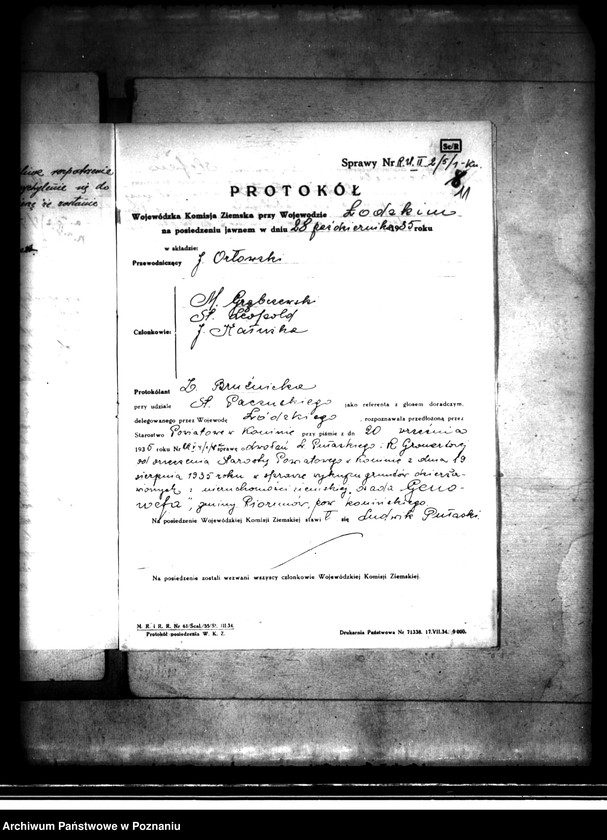 Sc/R
Sprawy Nr R.U. II 2/5/1-Kn.
8
11
PROTOKÓŁ
Wojewódzka Komisja Ziemska przy Wojewodzie Łódzkim
na posiedzeniu jawnem w dniu 28 października 1935 roku
w składzie:
Przewodniczący J. Orłowski
M. Grąbczewski
St. Leopold
Członkowie: J. Kałużka
Protokólant Z. Bruźnicka
przy udziale St. Paczuskiego jako referenta z głosem doradczym,
delegowanego przez Wojewodę Łódzkiego rozpoznawała przedłożoną przez
Starostwo Powiatowe w Koninie przy piśmie z dn 20 września
1935 roku Nr sprawę odwołań L. Pułaskiego i R.
od orzeczenia Starosty Powiatowego w Koninie z dnia 19
sierpnia 1935 roku w sprawie wykupu gruntów dzierża-
wionych z nieruchomości ziemskiej, osada Geno-
wefa", gminy Piorunów, pow. konińskiego
Na posiedzenie Wojewódzkiej Komisji Ziemskiej stawił się Ludwik Pułaski.
Na posiedzenie zostali wezwani wszyscy członkowie Wojewódzkiej Komisji Ziemskiej.
M. R. i R. R. Nr 61/Scal./35/St. III.34.
Protokół posiedzenia W. K. Z.
Drukarnia Państwowa Nr 71338. 17.VII.34. 9 000.
Archiwum Państwowe w Poznaniu